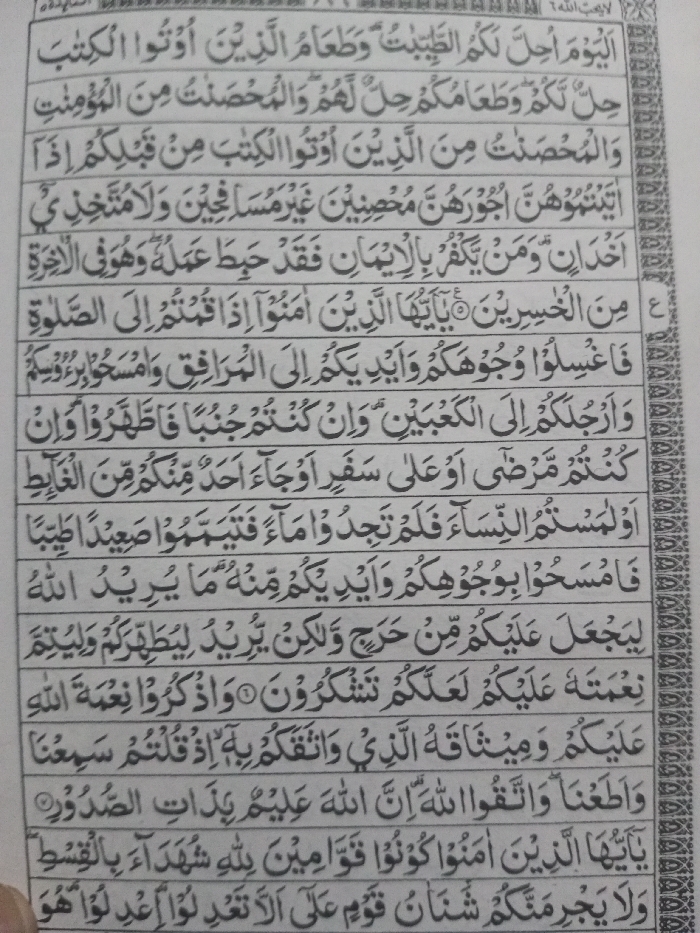 لا يحب الله ٦
اَلْيَوْمَ اُحِلَّ لَكُمُ الطَّيِّبٰتُ ؕ وَطَعَامُ الَّذِيْنَ اُوْتُوا الْكِتٰبَ
حِلٌّ لَّكُمْ ۪ وَطَعَامُكُمْ حِلٌّ لَّهُمْ ۫ وَالْمُحْصَنٰتُ مِنَ الْمُؤْمِنٰتِ
وَالْمُحْصَنٰتُ مِنَ الَّذِيْنَ اُوْتُوا الْكِتٰبَ مِنْ قَبْلِكُمْ اِذَاۤ
اٰتَيْتُمُوْهُنَّ اُجُوْرَهُنَّ مُحْصِنِيْنَ غَيْرَ مُسَافِحِيْنَ وَلَا مُتَّخِذِيْۤ
اَخْدَانٍ ؕ وَمَنْ يَّكْفُرْ بِالْاِيْمَانِ فَقَدْ حَبِطَ عَمَلُهٗ ۫ وَهُوَ فِى الْاٰخِرَةِ
مِنَ الْخٰسِرِيْنَ ۝۵ يٰۤاَيُّهَا الَّذِيْنَ اٰمَنُوْۤا اِذَا قُمْتُمْ اِلَى الصَّلٰوةِ
ع
فَاغْسِلُوْا وُجُوْهَكُمْ وَاَيْدِيَكُمْ اِلَى الْمَرَافِقِ وَامْسَحُوْا بِرُءُوْسِكُمْ
وَاَرْجُلَكُمْ اِلَى الْكَعْبَيْنِ ؕ وَاِنْ كُنْتُمْ جُنُبًا فَاطَّهَّرُوْا ؕ وَاِنْ
كُنْتُمْ مَّرْضٰۤى اَوْ عَلٰى سَفَرٍ اَوْ جَآءَ اَحَدٌ مِّنْكُمْ مِّنَ الْغَآئِطِ
اَوْ لٰمَسْتُمُ النِّسَآءَ فَلَمْ تَجِدُوْا مَآءً فَتَيَمَّمُوْا صَعِيْدًا طَيِّبًا
فَامْسَحُوْا بِوُجُوْهِكُمْ وَاَيْدِيْكُمْ مِّنْهُ ؕ مَا يُرِيْدُ اللّٰهُ
لِيَجْعَلَ عَلَيْكُمْ مِّنْ حَرَجٍ وَّلٰكِنْ يُّرِيْدُ لِيُطَهِّرَكُمْ وَلِيُتِمَّ
نِعْمَتَهٗ عَلَيْكُمْ لَعَلَّكُمْ تَشْكُرُوْنَ ۝۶ وَاذْكُرُوْا نِعْمَةَ اللّٰهِ
عَلَيْكُمْ وَمِيْثَاقَهُ الَّذِيْ وَاثَقَكُمْ بِهٖۤ ۙ اِذْ قُلْتُمْ سَمِعْنَا
وَاَطَعْنَا ۫ وَاتَّقُوا اللّٰهَ ؕ اِنَّ اللّٰهَ عَلِيْمٌۢ بِذَاتِ الصُّدُوْرِ ۝۷
يٰۤاَيُّهَا الَّذِيْنَ اٰمَنُوْا كُوْنُوْا قَوّٰمِيْنَ لِلّٰهِ شُهَدَآءَ بِالْقِسْطِ ۫
وَلَا يَجْرِمَنَّكُمْ شَنَاٰنُ قَوْمٍ عَلٰۤى اَلَّا تَعْدِلُوْا ؕ اِعْدِلُوْا ۫ هُوَ